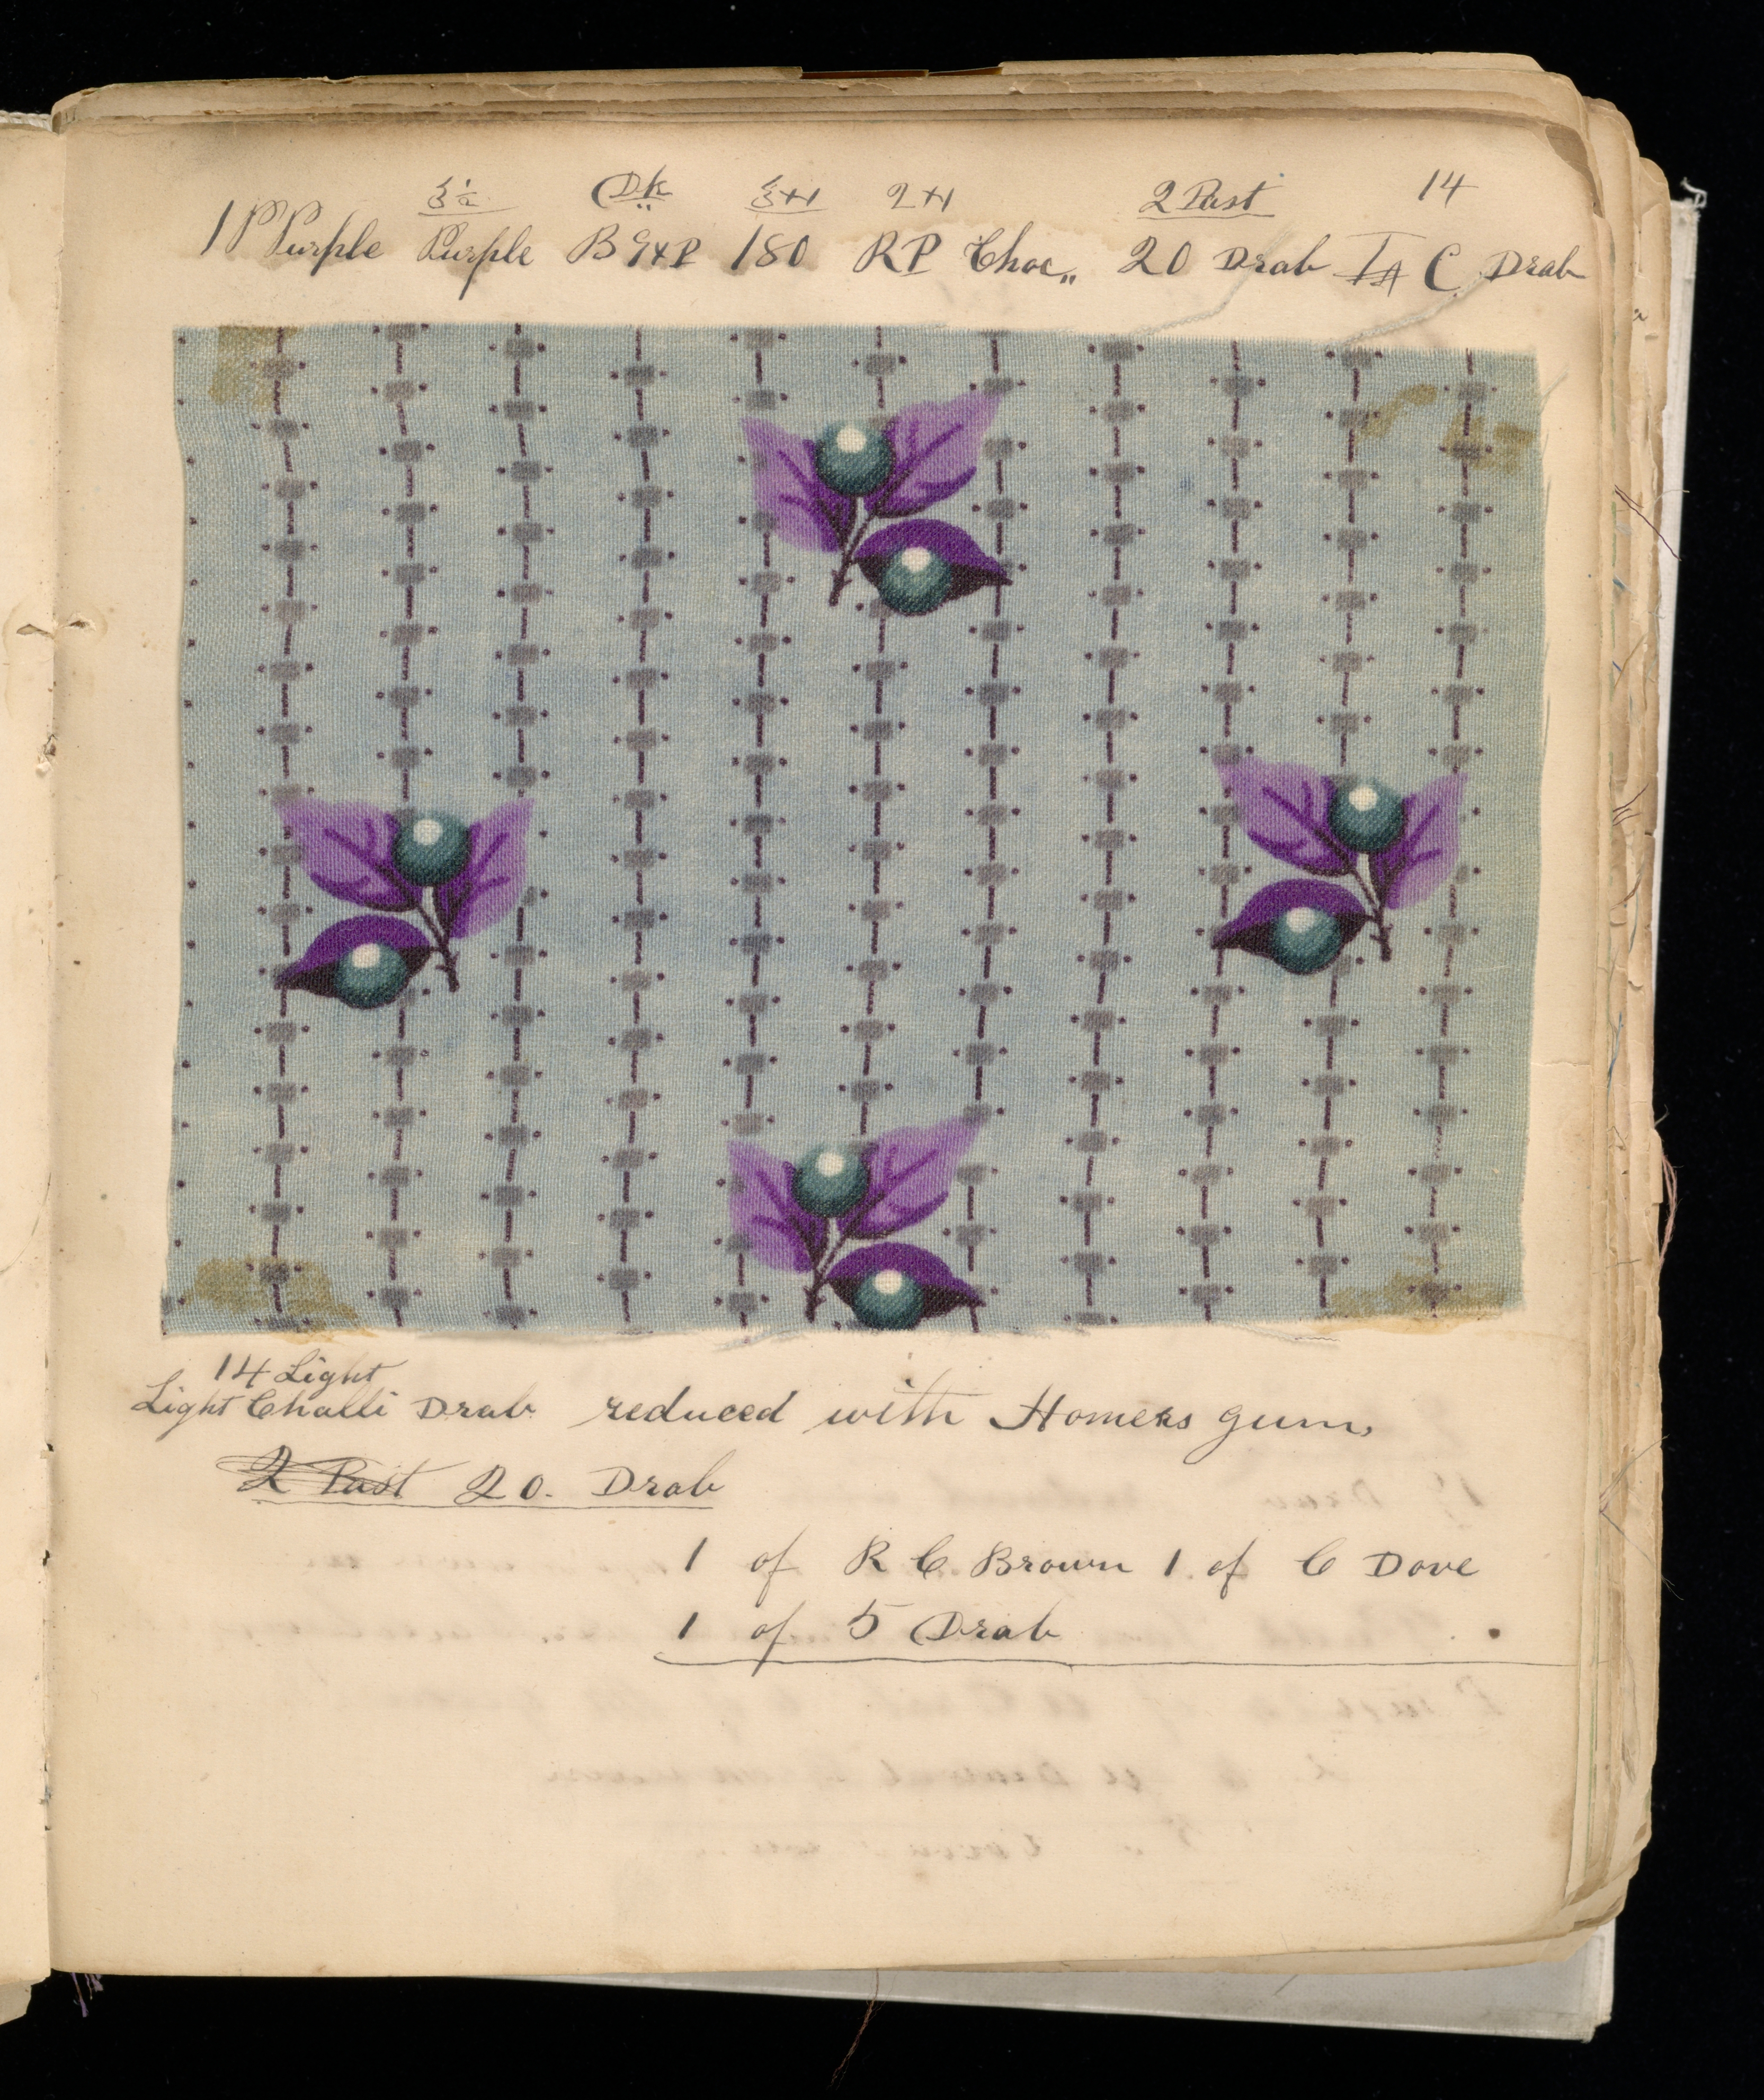 Dk 2 H 2 Past 14
1 P Purple Purple B 180 RP Choc,, 20 Drab C Drab
14 Light
Light Challi Drab reduced with Homers gum,
2 Past 20. Drab
1 of R C Brown 1 of C Dove
1 of 5 Drab